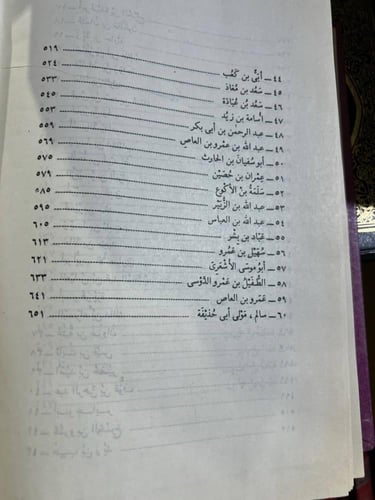 ٤٤ ــ أُبَيُّ بن كَعْب ٥١٩
٤٥ ــ سَعْد بن مُعَاذ ٥٢٤
٤٦ ــ سَعْد بْنُ عُبَادَة ٥٣٣
٤٧ ــ أسامة بن زَيْد ٥٤٥
٤٨ ــ عبد الرحمٰن بن أبي بكر ٥٥٣
٤٩ ــ عبد الله بن عمرو بن العاص ٥٥٩
٥٠ ــ أبو سُفيان بن الحارث ٥٦٩
٥١ ــ عِمْران بن حُصَيْن ٥٧٥
٥٢ ــ سَلَمَةُ بنُ الأَكْوَع ٥٧٩
٥٣ ــ عبد الله بن الزُّبَيْر ٥٨٥
٥٤ ــ عبد الله بن العباس ٥٩٥
٥٥ ــ عَبَّاد بن بِشْر ٦٠٥
٥٦ ــ سُهَيْل بن عَمْرو ٦١٣
٥٧ ــ أبو موسى الأَشْعَرِيّ ٦٢١
٥٨ ــ الطُّفَيْلُ بن عَمْرو الدَّوْسى ٦٣٣
٥٩ ــ عَمْرو بن العاص ٦٤١
٦٠ ــ سالم، مَوْلى أبي حُذَيْفَة ٦٥١